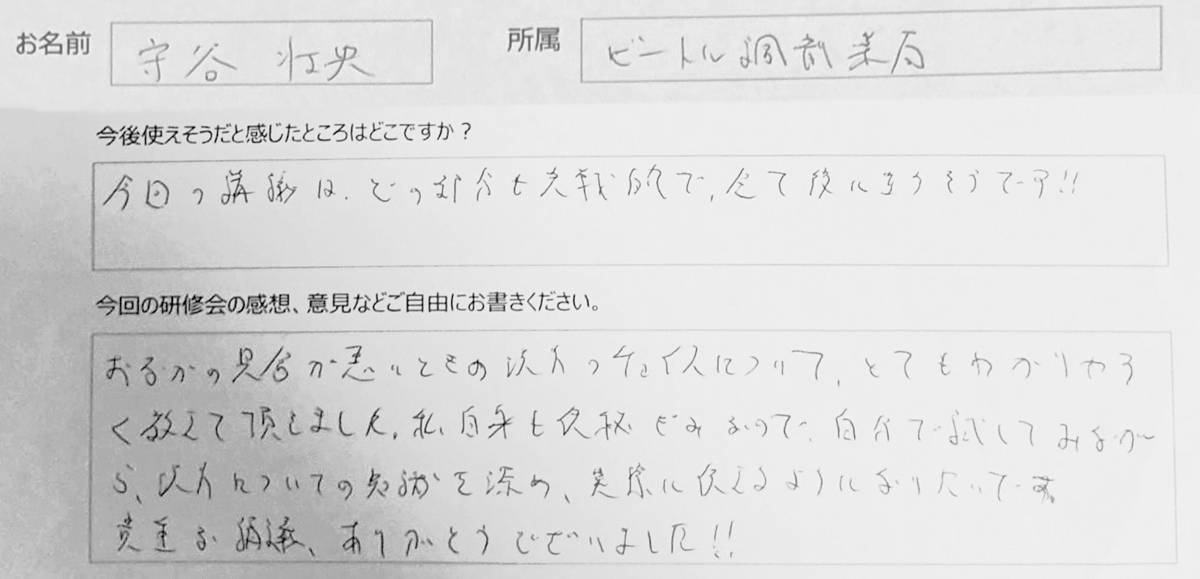 お名前 守谷 壮央 所属 ビートル調剤薬局
今後使えそうだと感じたところはどこですか？
今回の講義は、どの部分も実戦的で、全て役に立ちそうです!!
今回の研修会の感想、意見などご自由にお書きください。
おなかの具合が悪いときの漢方のチョイスについて、とてもわかりやす
く教えて頂きました。私自身も 自分で試してみなが
ら、漢方についての知識を深め、実際に使えるようになりたいです。
貴重な講義、ありがとうございました!!